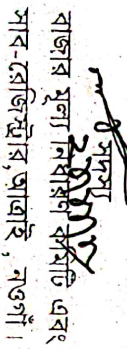 সদস্য
বাজার মূল্য নির্ধারণ কমিটি এবং
সাব-রেজিস্ট্রার, আত্রাই, নওগাঁ।